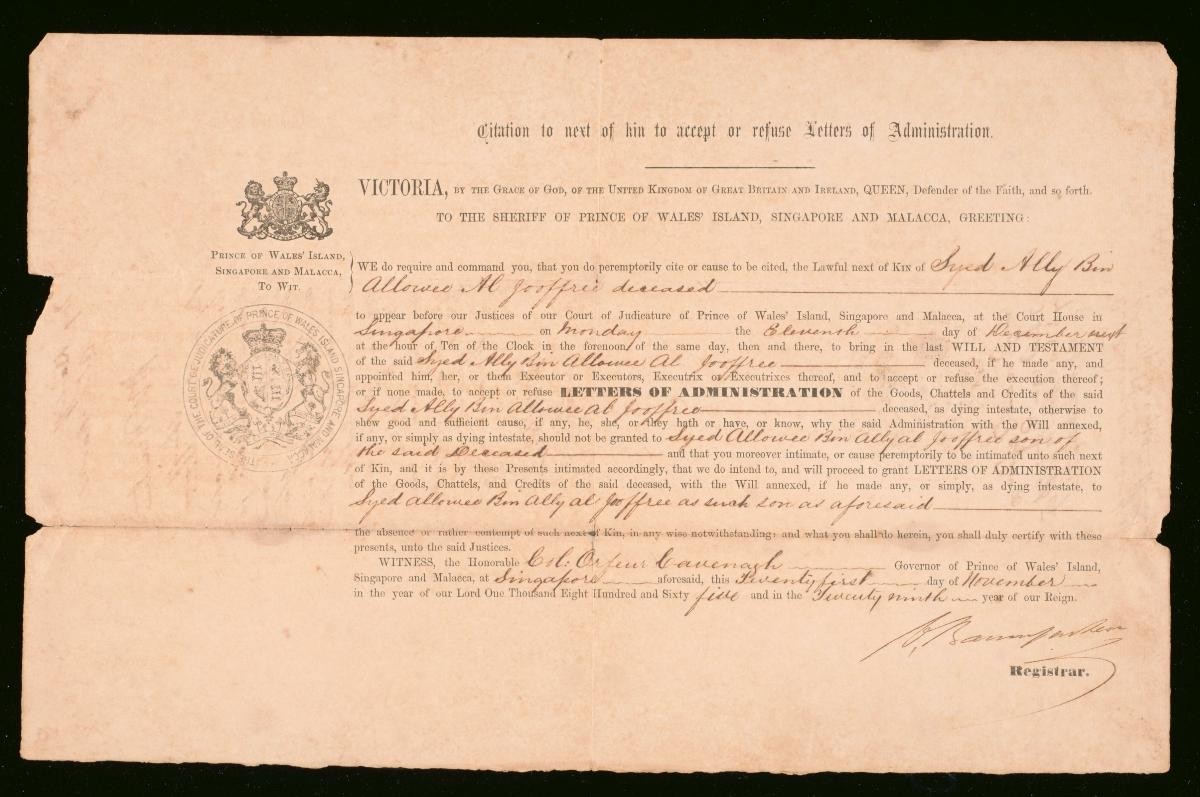 Citation to next of kin to accept or refuse Letters of Administration.
VICTORIA, BY THE GRACE OF GOD, OF THE UNITED KINGDOM OF GREAT BRITAIN AND IRELAND, QUEEN, Defender of the Faith, and so forth.
TO THE SHERIFF OF PRINCE OF WALES' ISLAND, SINGAPORE AND MALACCA, GREETING:
PRINCE OF WALES' ISLAND,
SINGAPORE AND MALACCA,
TO WIT.
THE SEAL OF THE COURT OF JUDICATURE OF PRINCE OF WALES ISLAND SINGAPORE AND MALACCA
WE do require and command you, that you do peremptorily cite or cause to be cited, the Lawful next of KIN of Syed Ally Bin
Allowee Al Jooffree deceased
to appear before our Justices of our Court of Judicature of Prince of Wales' Island, Singapore and Malacca, at the Court House in
Singapore on Monday the Eleventh day of December next
at the hour of Ten of the Clock in the forenoon of the same day, then and there, to bring in the last WILL AND TESTAMENT
of the said Syed Ally Bin Allowee Al Jooffree deceased, if he made any, and
appointed him, her, or them Executor or Executors, Executrix or Executrixes thereof, and to accept or refuse the execution thereof;
or if none made, to accept or refuse LETTERS OF ADMINISTRATION of the Goods, Chattels and Credits of the said
Syed Ally Bin Allowee Al Jooffree deceased, as dying intestate, otherwise to
shew good and sufficient cause, if any, he, she, or they hath or have, or know, why the said Administration with the Will annexed,
if any, or simply as dying intestate, should not be granted to Syed Allowee Bin Ally al Jooffree son of
the said Deceased and that you moreover intimate, or cause peremptorily to be intimated unto such next
of Kin, and it is by these Presents intimated accordingly, that we do intend to, and will proceed to grant LETTERS OF ADMINISTRATION
of the Goods, Chattels, and Credits of the said deceased, with the Will annexed, if he made any, or simply, as dying intestate, to
Syed Allowee Bin Ally al Jooffree as such son as aforesaid
the absence or rather contempt of such next of Kin, in any wise notwithstanding: and what you shall do herein, you shall duly certify with these
presents, unto the said Justices.
WITNESS, the Honorable Col: Orfeur Cavenagh Governor of Prince of Wales' Island,
Singapore and Malacca, at Singapore aforesaid, this Twenty first day of November
in the year of our Lord One Thousand Eight Hundred and Sixty five and in the Twenty ninth year of our Reign.
Registrar.